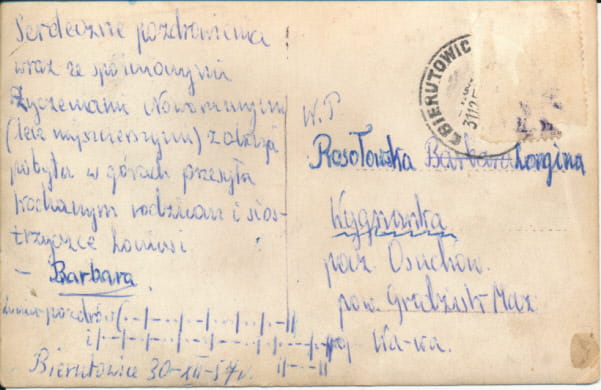 Serdeczne pozdrowienia
wraz ze spóźnionymi
życzeniami Noworocznymi
(lecz najszczerszymi) z okazji
pobytu w górach przesyła
kochanym rodzicom i sios-
trzyczce Loniusi
- Barbara.
Bierutowice 30-XII-57r.
BIERUTOWIC
3112
W.P
Rosołowska Barbara Longina
Wygnanka
pocz. Osuchów.
pow. Grodzisk Maz
woj Wa-wa.